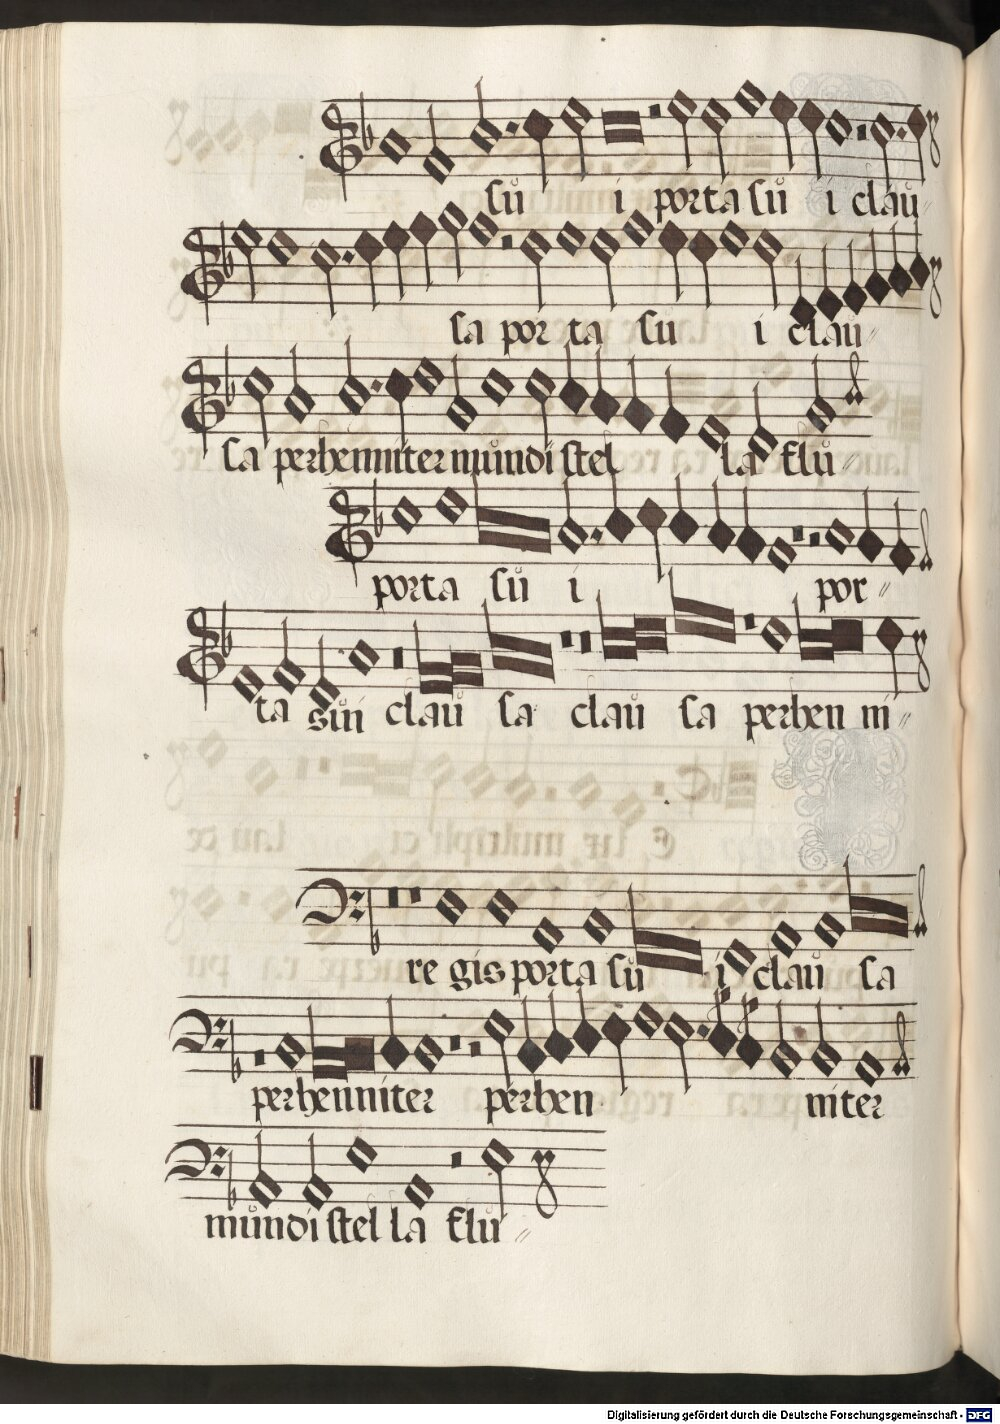 sů i porta sů i claů
sa por ta sů i claů
sa perhenniter můndi stel la flů
porta sů i por
ta sůi claů sa claů sa perhen ni
re gis porta sů i claů sa
perhenniter perhen niter
můndi stel la flů
Digitalisierung gefördert durch die Deutsche Forschungsgemeinschaft - DFG